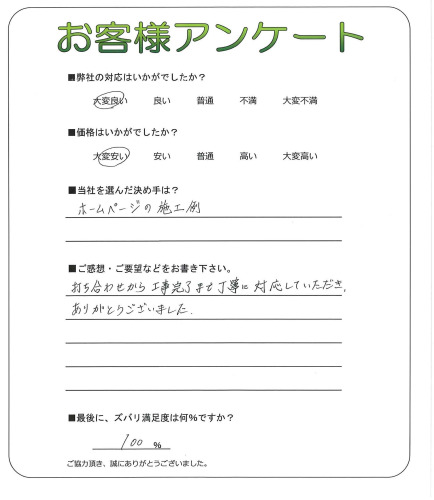 お客様アンケート
■弊社の対応はいかがでしたか？
大変良い 良い 普通 不満 大変不満
■価格はいかがでしたか？
大変安い 安い 普通 高い 大変高い
■当社を選んだ決め手は？
ホームページの施工例
■ご感想・ご要望などをお書き下さい。
打ち合わせから工事完了まで丁寧に対応していただき、
ありがとうございました。
■最後に、ズバリ満足度は何%ですか？
100 %
ご協力頂き、誠にありがとうございました。